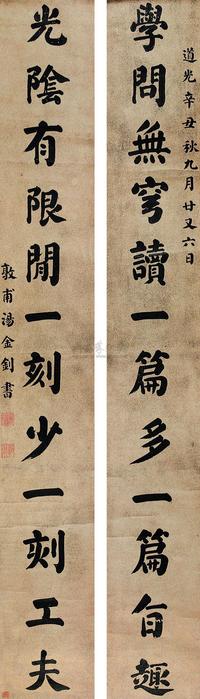 道光辛丑秋九月廿又六日
學問無穹讀一篇多一篇旨趣
光陰有限閒一刻少一刻工夫
敦甫湯金釗書